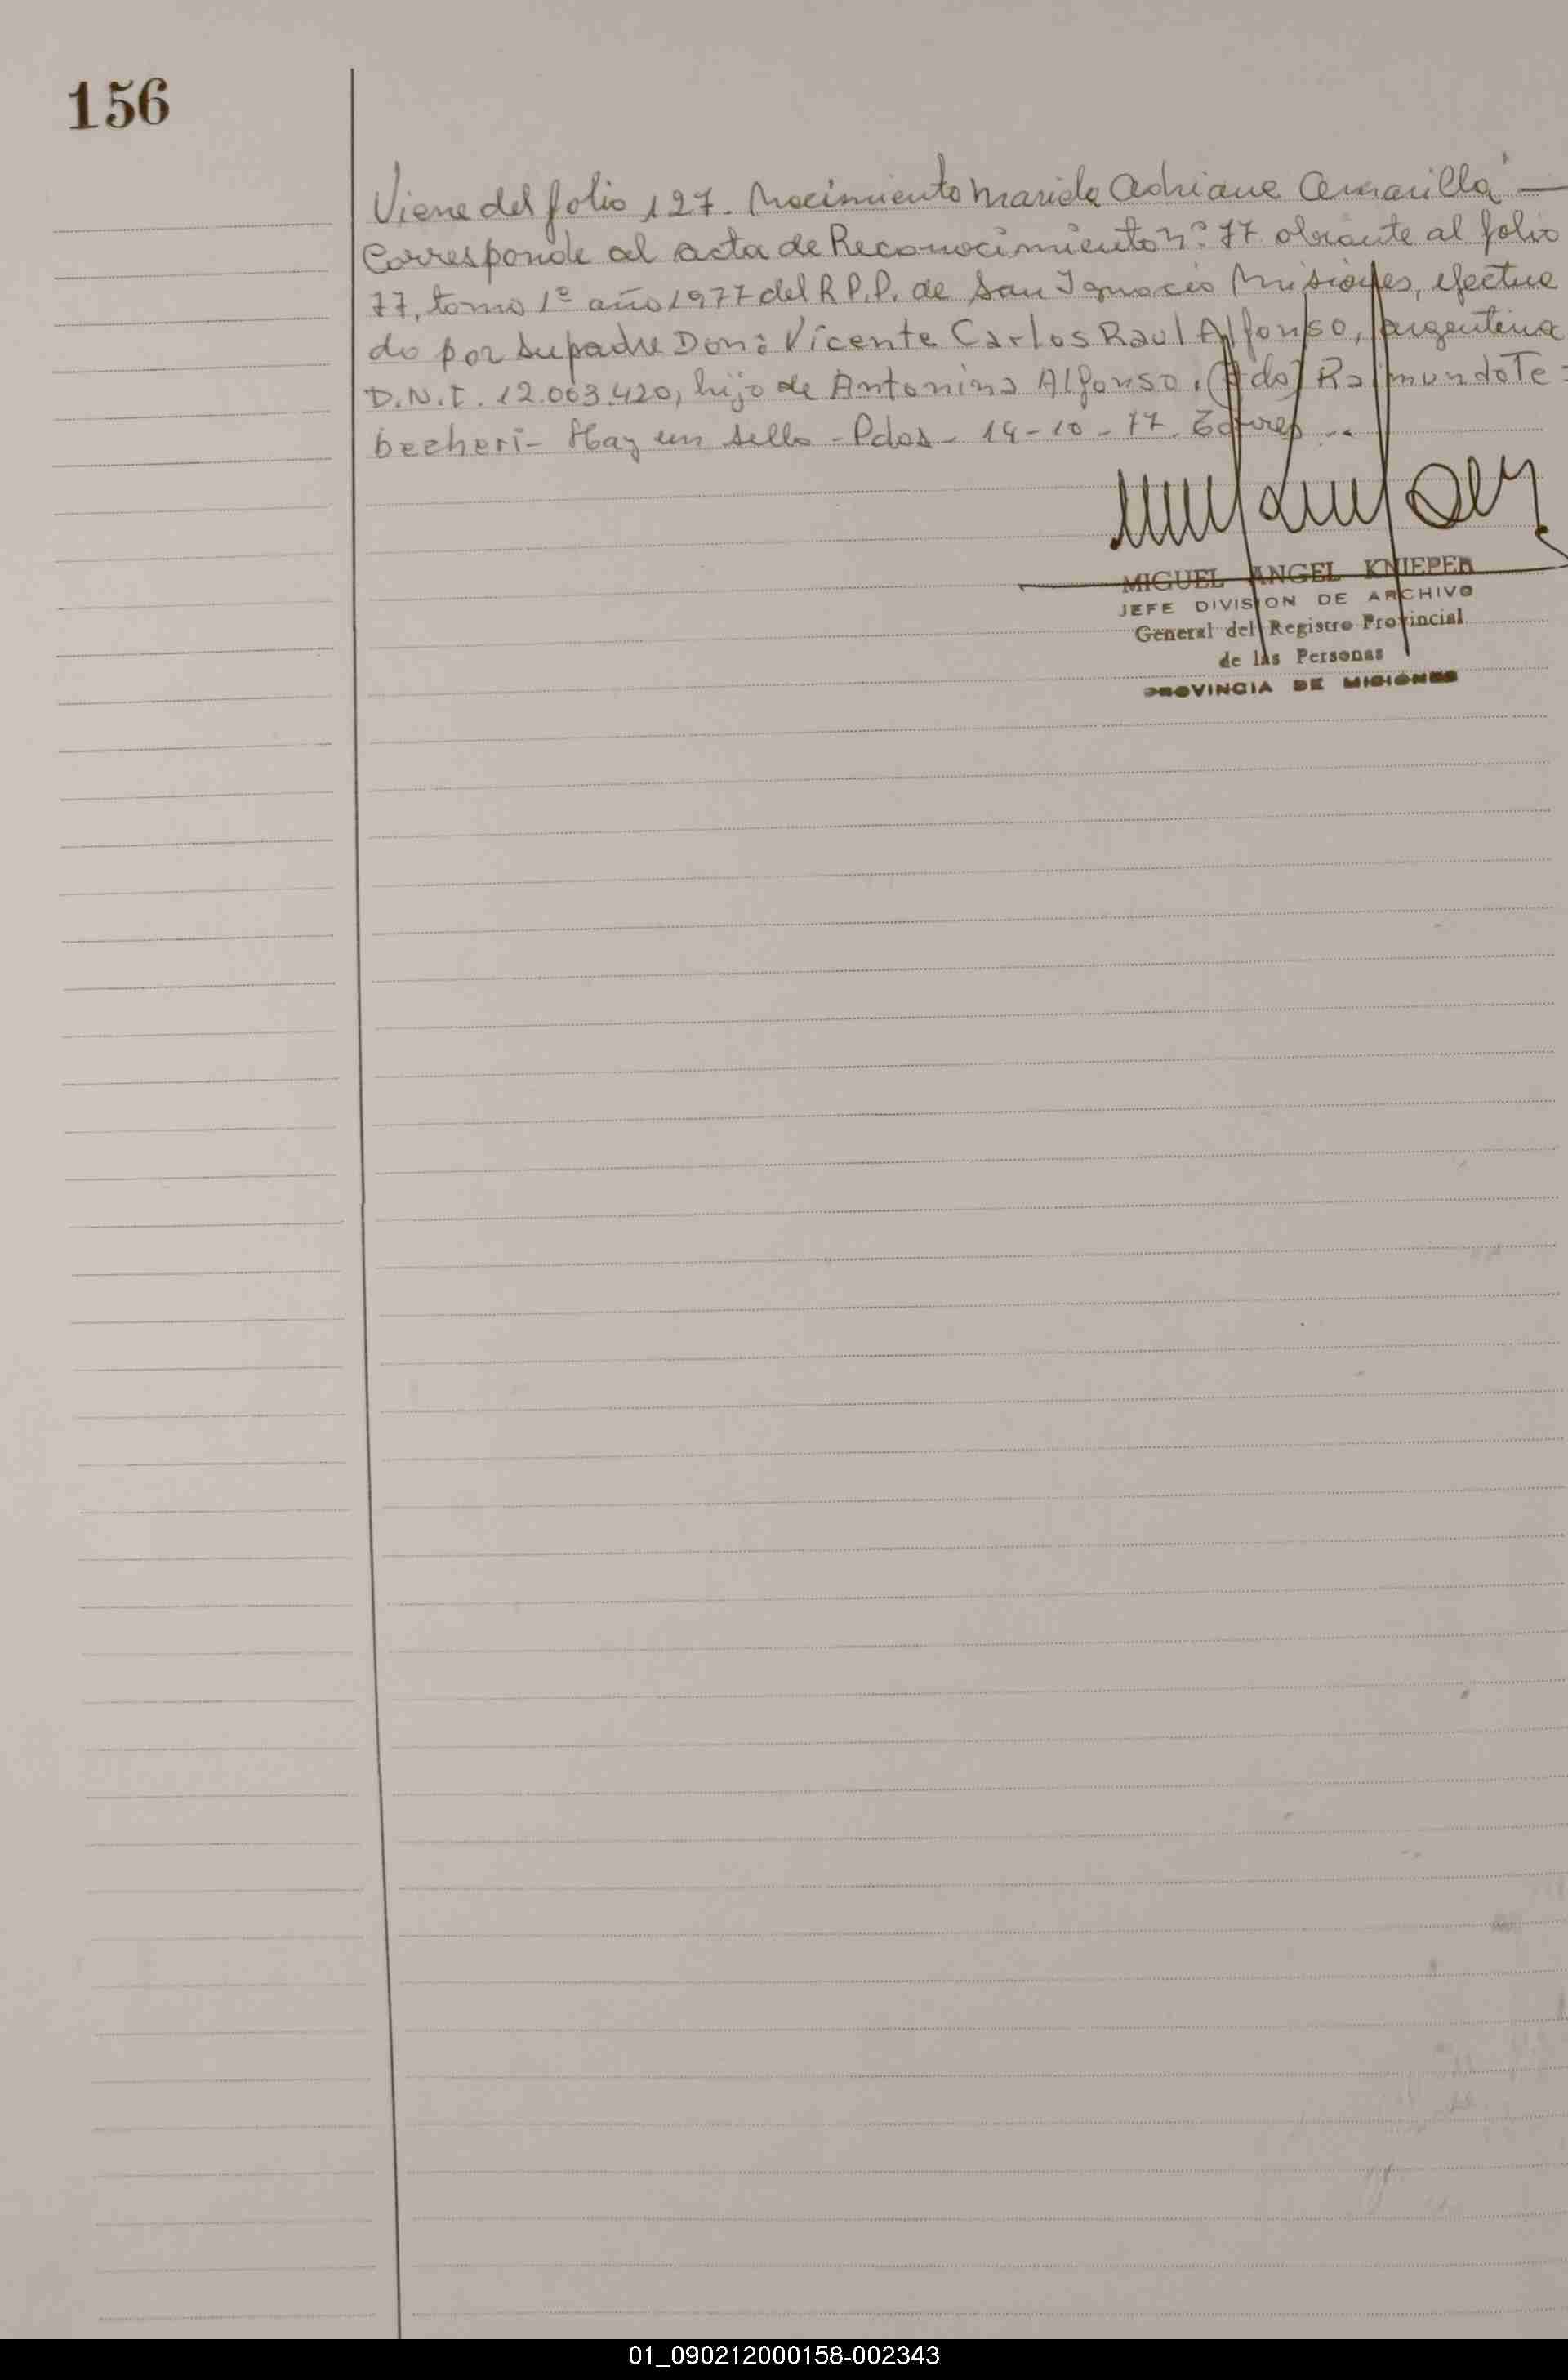 156
Viene del folio 127. Nacimiento Mariela Adriana Amarilla —
Corresponde al acta de Reconocimiento nº 77 obrante al folio
77, tomo 1º año 1977 del R.P.P. de San Ignacio Misiones, efectua
do por su padre Don: Vicente Carlos Raul Alfonso, argentino
D.N.I. 12.063.420, hijo de Antonina Alfonso. (Fdo) Raimundo Te=
becheri - Hay un sello - Pdas - 14-10-77.
MIGUEL ANGEL KNIEPER
JEFE DIVISION DE ARCHIVO
General del Registro Provincial
de las Personas
PROVINCIA DE MISIONES
01_090212000158-002343